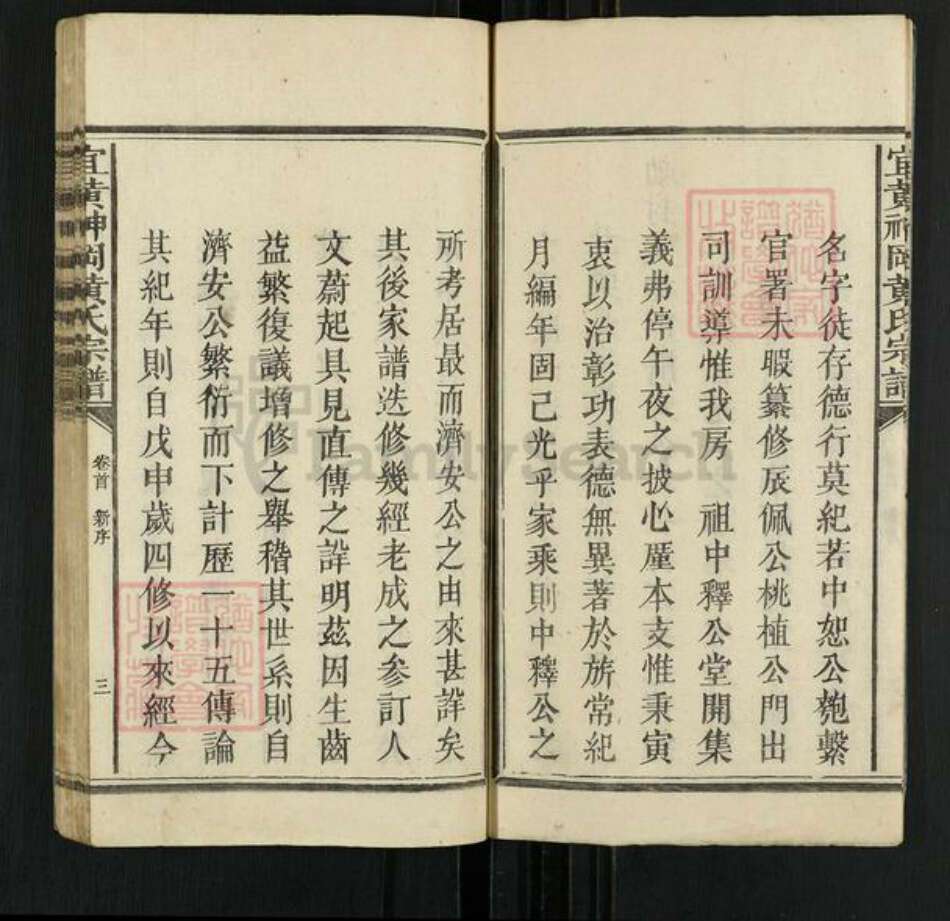 宜黃神岡黃氏宗譜
名字徒存德行莫紀若中恕公匏繫
官署未暇纂修辰佩公桃植公門出
司訓導惟我房　祖中釋公堂開集
義弗停午夜之披心厪本支惟秉寅
衷以治彰功表德無異著於旂常紀
月編年固已光乎家乘則中釋公之
所考居最而濟安公之由來甚詳矣
其後家譜迭修幾經老成之參訂人
文蔚起具見直傳之詳明茲因生齒
益繁復議增修之舉稽其世系則自
濟安公繁衍而下計歷一十五傳論
其紀年則自戊申歲四修以來經今
宜黃神岡黃氏宗譜
卷首　新序
三
FamilySearch